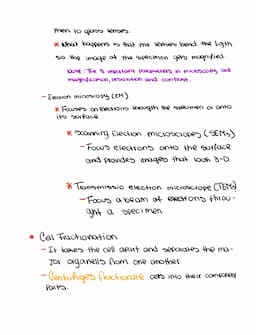 then to glass lenses.
* What happens is that the lenses bend the ligth
so the image of the specimen gets magnified.
Note: The 3 important parameters in microscopy are
magnification, resolution and contrast.
- Electron microscopy (EM)
* Focuses on electrons through the specimen or onto
its surface
* Scanning Electron microscopes (SEMs)
- Focus electrons onto the surface
and provides images that look 3-D.
* Transmissio electron microscope (TEMs)
- Focus a beam of electrons throu-
ght a specimen
• Cell Fractionation
- It takes the cell apart and separates the ma-
jor organells from one another
- Centrifuges fractionate cells into their component
parts.